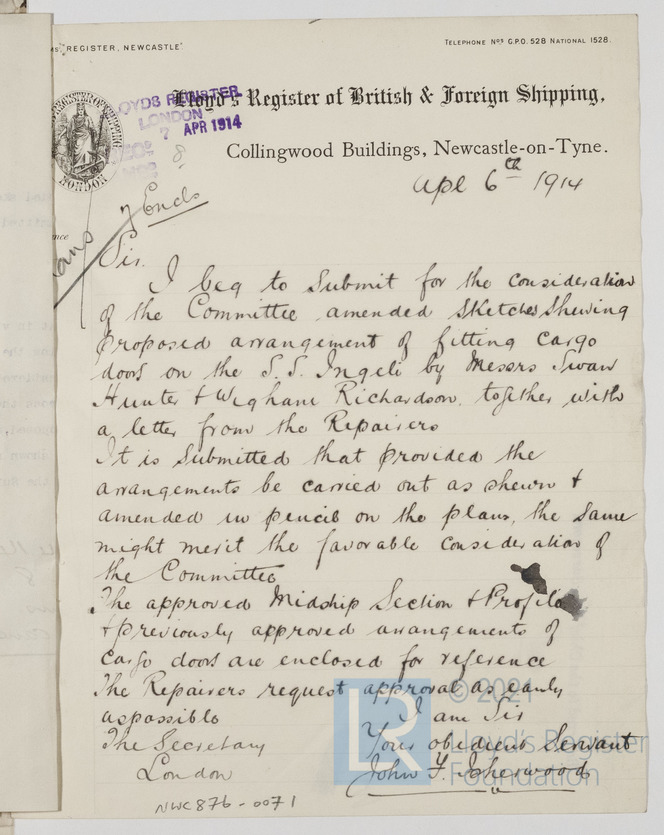 REGISTER, NEWCASTLE"
TELEPHONE Nos G.P.O. 528 NATIONAL 1528.
Lloyd's Register of British & Foreign Shipping,
LLOYDS REGISTER
LONDON
7 APR 1914
8
LONDON
Collingwood Buildings, Newcastle-on-Tyne.
Apl 6th 1914
7 Encls
Sir.
I beg to submit for the consideration
of the Committee amended sketches shewing
proposed arrangement of fitting cargo
doors on the S.S. Ingeli by Messrs Swan
Hunter & Wigham Richardson. together with
a letter from the Repairers
It is submitted that provided the
arrangements be carried out as shewn &
amended in pencil on the plans, the same
might merit the favorable consideration of
the Committee
The approved Midship Section & Profile
& previously approved arrangements of
cargo doors are enclosed for reference
The Repairers request approval as early
as possible
I am Sir
The Secretary
Your obedient Servant
London
John Y. Isherwood
NWC876-0071
LR
© 2021
Lloyd's Register
Foundation